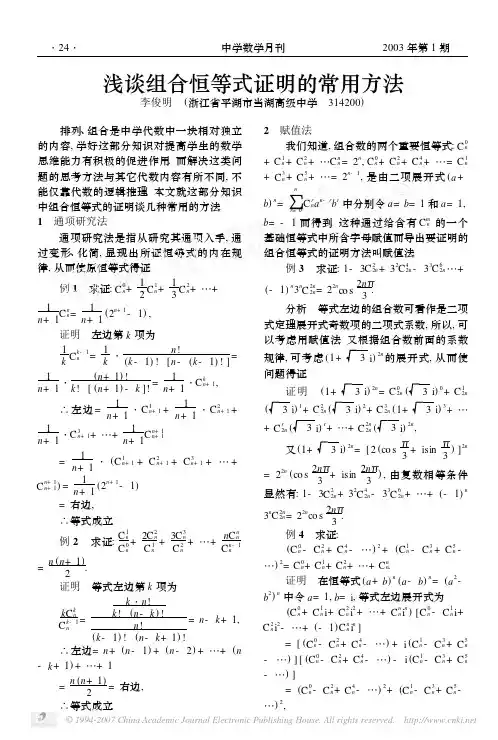 · 24 · 中学数学月刊 2003 年第 1 期
浅谈组合恒等式证明的常用方法
李俊明 (浙江省平湖市当湖高级中学 314200)
排列、组合是中学代数中一块相对独立
的内容, 学好这部分知识对提高学生的数学
思维能力有积极的促进作用. 而解决这类问
题的思考方法与其它代数内容有所不同, 不
能仅靠代数的逻辑推理. 本文就这部分知识
中组合恒等式的证明谈几种常用的方法.
1 通项研究法
通项研究法是指从研究其通项入手, 通
过变形、化简, 显现出所证恒等式的内在规
律, 从而使原恒等式得证.
例 1 求证: C_n^0 + 1/2 C_n^1 + 1/3 C_n^2 + … +
1/(n+1) C_n^n = 1/(n+1) (2^{n+1} - 1).
证明 左边第 k 项为
1/k C_n^{k-1} = 1/k · n!/((k-1)! [n-(k-1)!]) =
1/(n+1) · (n+1)!/(k! [(n+1)-k]!) = 1/(n+1) · C_{n+1}^k,
∴左边 = 1/(n+1) · C_{n+1}^1 + 1/(n+1) · C_{n+1}^2 +
1/(n+1) · C_{n+1}^3 + … + 1/(n+1) C_{n+1}^{n+1}
= 1/(n+1) · (C_{n+1}^1 + C_{n+1}^2 + C_{n+1}^3 + … +
C_{n+1}^{n+1}) = 1/(n+1) (2^{n+1} - 1)
= 右边,
∴等式成立.
例 2 求证: C_n^1/C_n^0 + 2C_n^2/C_n^1 + 3C_n^3/C_n^2 + … + nC_n^n/C_n^{n-1}
= n(n+1)/2.
证明 等式左边第 k 项为
kC_n^k/C_n^{k-1} = (k·n!/(k!(n-k)!))/(n!/((k-1)!(n-k+1)!)) = n-k+1,
∴左边 = n + (n-1) + (n-2) + … + (n
-k+1) + … + 1
= n(n+1)/2 = 右边,
∴等式成立.
2 赋值法
我们知道, 组合数的两个重要恒等式: C_n^0
+ C_n^1 + C_n^2 + …C_n^n = 2^n, C_n^0 + C_n^2 + C_n^4 + … = C_n^1
+ C_n^3 + C_n^5 + … = 2^{n-1}, 是由二项展开式 (a+
b)^n = ∑C_n^r a^{n-r} b^r 中分别令 a = b = 1 和 a = 1,
b = -1 而得到. 这种通过给含有 C_n^r 的一个
基础恒等式中所含字母赋值而导出要证明的
组合恒等式的证明方法叫赋值法.
例 3 求证: 1 - 3C_{2n}^2 + 3^2C_{2n}^4 - 3^3C_{2n}^6 … +
(-1)^n 3^n C_{2n}^{2n} = 2^{2n} cos 2nπ/3.
分析 等式左边的组合数可看作是二项
式定理展开式奇数项的二项式系数, 所以, 可
以考虑用赋值法. 又根据组合数前面的系数
规律, 可考虑 (1+√3 i)^{2n} 的展开式, 从而使
问题得证.
证明 (1+√3 i)^{2n} = C_{2n}^0 (√3 i)^0 + C_{2n}^1
(√3 i)^1 + C_{2n}^2 (√3 i)^2 + C_{2n}^3 (1+√3 i)^3 + …
+ C_{2n}^r (√3 i)^r + … + C_{2n}^{2n} (√3 i)^{2n},
又 (1+√3 i)^{2n} = [2(cos π/3 + isin π/3)]^{2n}
= 2^{2n} (cos 2nπ/3 + isin 2nπ/3), 由复数相等条件
显然有: 1 - 3C_{2n}^2 + 3^2C_{2n}^4 - 3^3C_{2n}^6 + … + (-1)^n
3^n C_{2n}^{2n} = 2^{2n} cos 2nπ/3.
例 4 求证:
(C_n^0 - C_n^2 + C_n^4 - …)^2 + (C_n^1 - C_n^3 + C_n^5 -
…)^2 = C_n^0 + C_n^1 + C_n^2 + … + C_n^n
证明 在恒等式 (a+b)^n (a-b)^n = (a^2-
b^2)^n 中令 a = 1, b = i, 等式左边展开式为
(C_n^0 + C_n^1 i + C_n^2 i^2 + … + C_n^n i^n) [C_n^0 - C_n^1 i +
C_n^2 i^2 - … + (-1)C_n^n i^n]
= [(C_n^0 - C_n^2 + C_n^4 - …) + i(C_n^1 - C_n^3 + C_n^5
- …)] [(C_n^0 - C_n^2 + C_n^4 - …) - i(C_n^1 - C_n^3 + C_n^5
- …)]
= (C_n^0 - C_n^2 + C_n^4 - …)^2 + (C_n^1 - C_n^3 + C_n^5 -
…)^2,
© 1994-2007 China Academic Journal Electronic Publishing House. All rights reserved. http://www.cnki.net